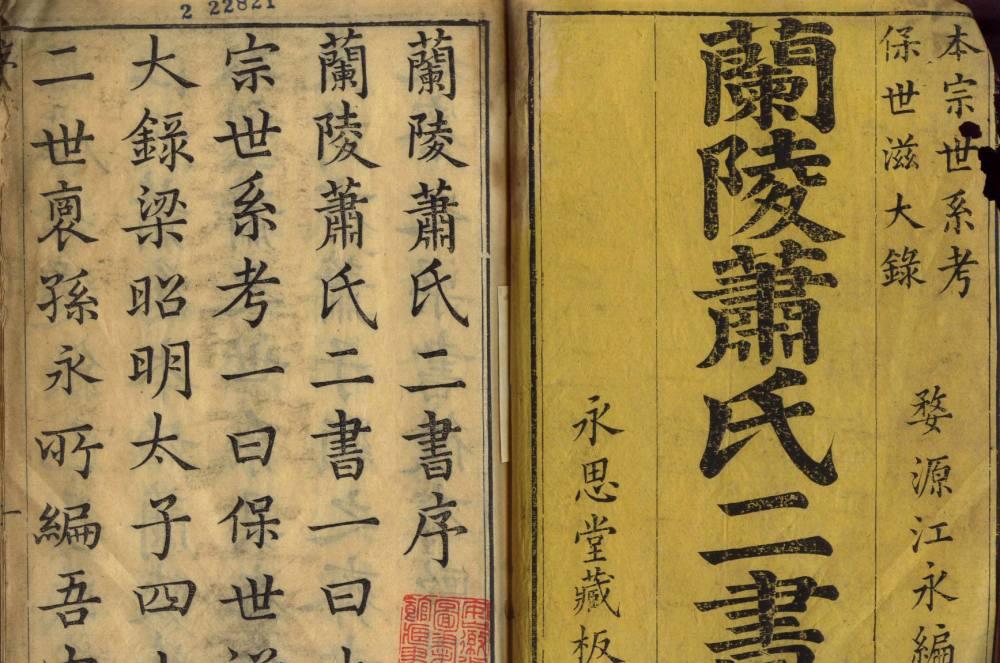 本宗世系考
保世滋大錄
婺源江永編
蘭陵蕭氏二書
永思堂藏板
2 22821
蘭陵蕭氏二書序
蘭陵蕭氏二書一曰
宗世系考一曰保世滋
大錄梁昭明太子四
二世裔孫永所編吾